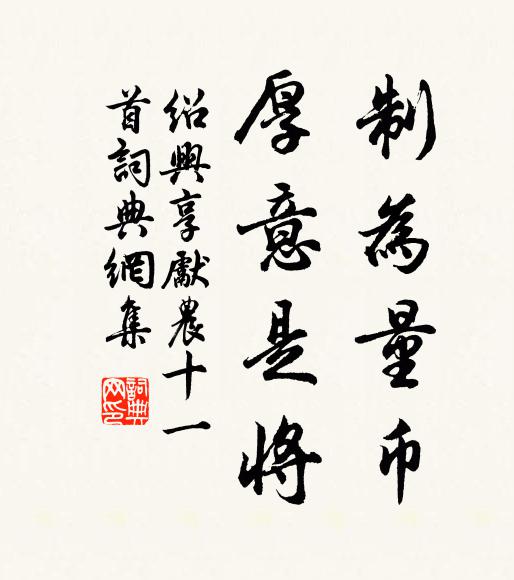 制為量币
厚意是將
紹興享獻農十一
首詞典網集
詞典網印